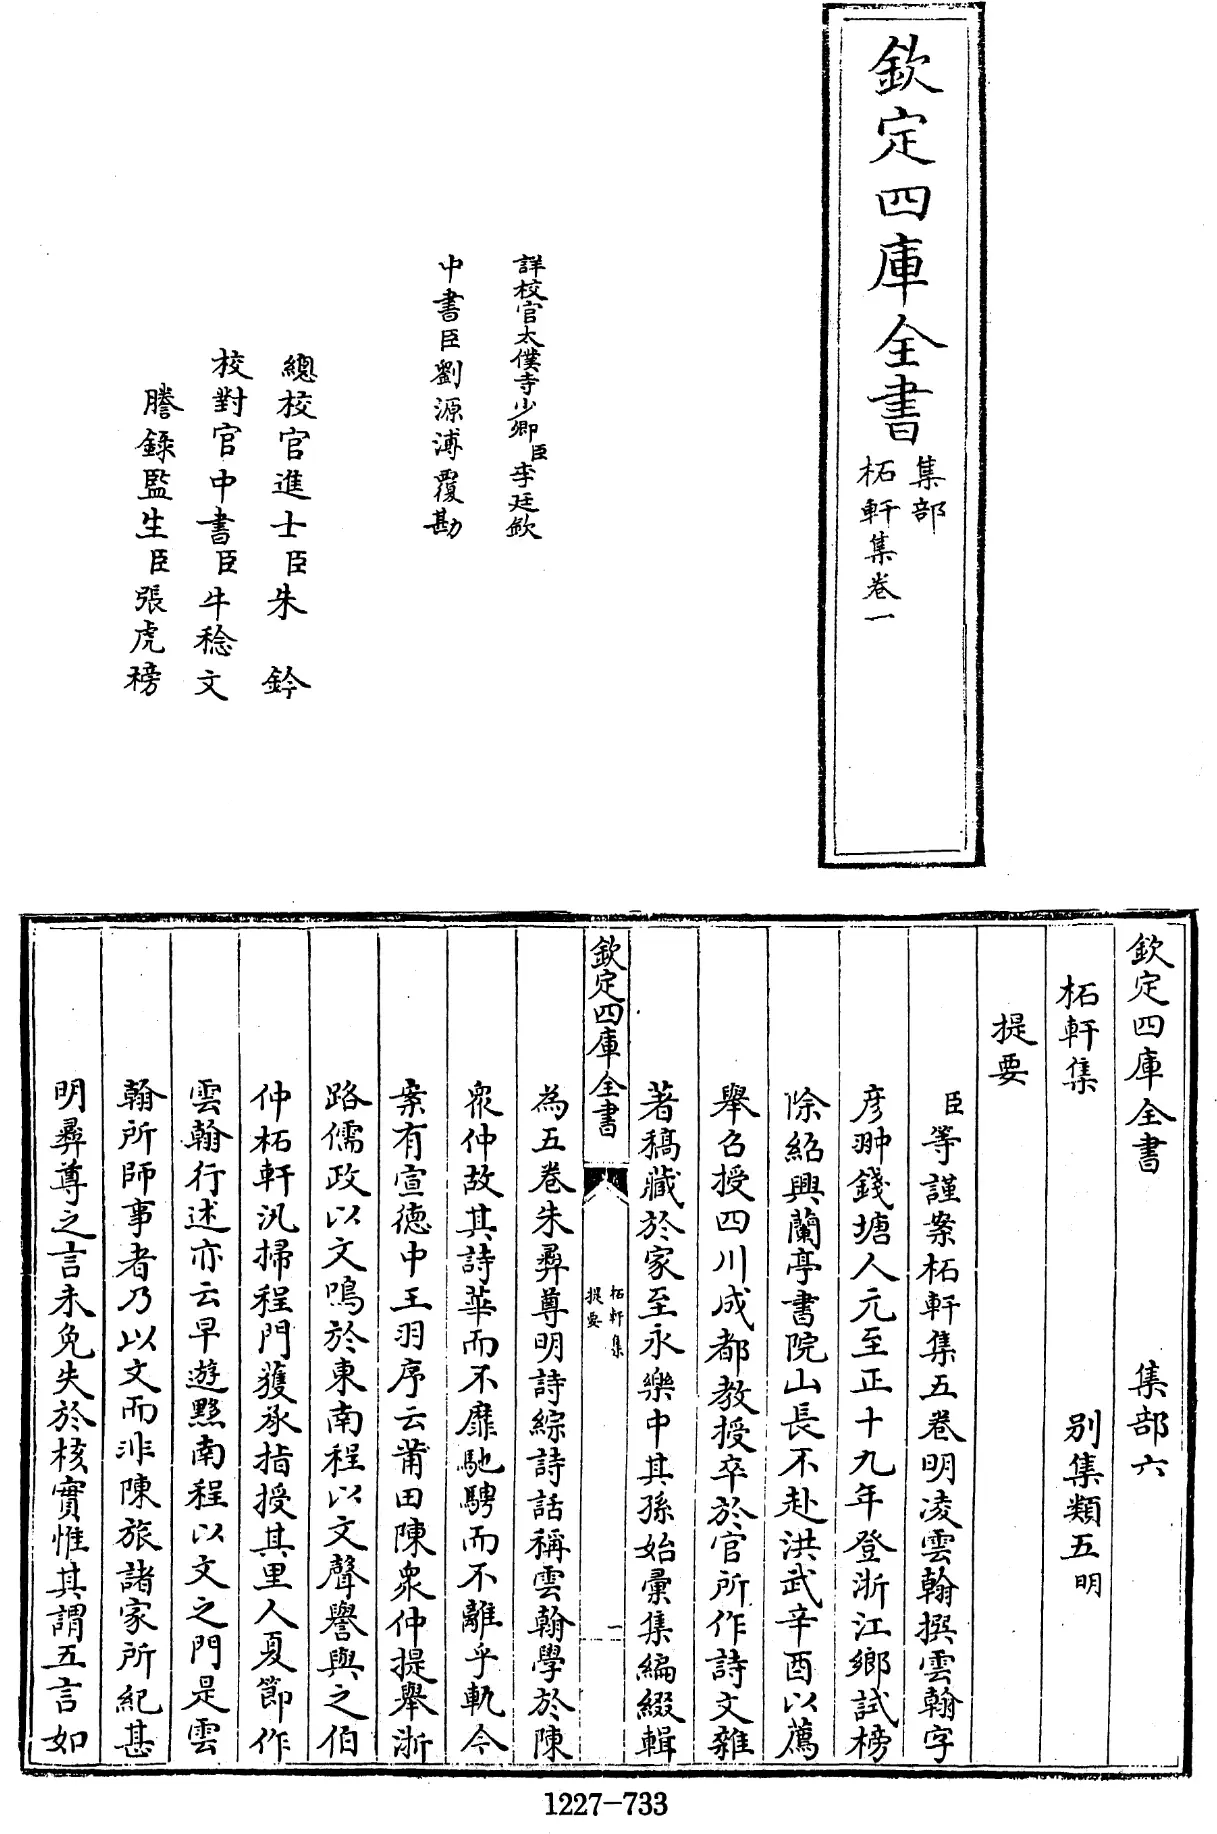 欽定四庫全書
集部
柘軒集卷一
詳校官太僕寺少卿臣李廷欽
中書臣劉源溥覆勘
總校官進士臣朱鈐
校對官中書臣牛稔文
謄錄監生臣張虎榜
欽定四庫全書 集部六
柘軒集 别集類五明
提要
臣等謹案柘軒集五卷明凌雲翰撰雲翰字
彦翀錢塘人元至正十九年登浙江鄉試榜
除紹興蘭亭書院山長不赴洪武辛酉以薦
舉召授四川成都教授卒於官所作詩文雜
著稿藏於家至永樂中其孫始彚集編綴輯
欽定四庫全書
柘軒集
提要
一
為五卷朱彞尊明詩綜詩話稱雲翰學於陳
衆仲故其詩華而不靡馳騁而不離乎軌今
案有宣德中王羽序云莆田陳衆仲提舉浙
路儒政以文鳴於東南程以文聲譽與之伯
仲柘軒汎掃程門獲承指授其里人夏節作
雲翰行述亦云早遊黟南程以文之門是雲
翰所師事者乃以文而非陳旅諸家所紀甚
明彞尊之言未免失於核實惟其謂五言如
1227-733